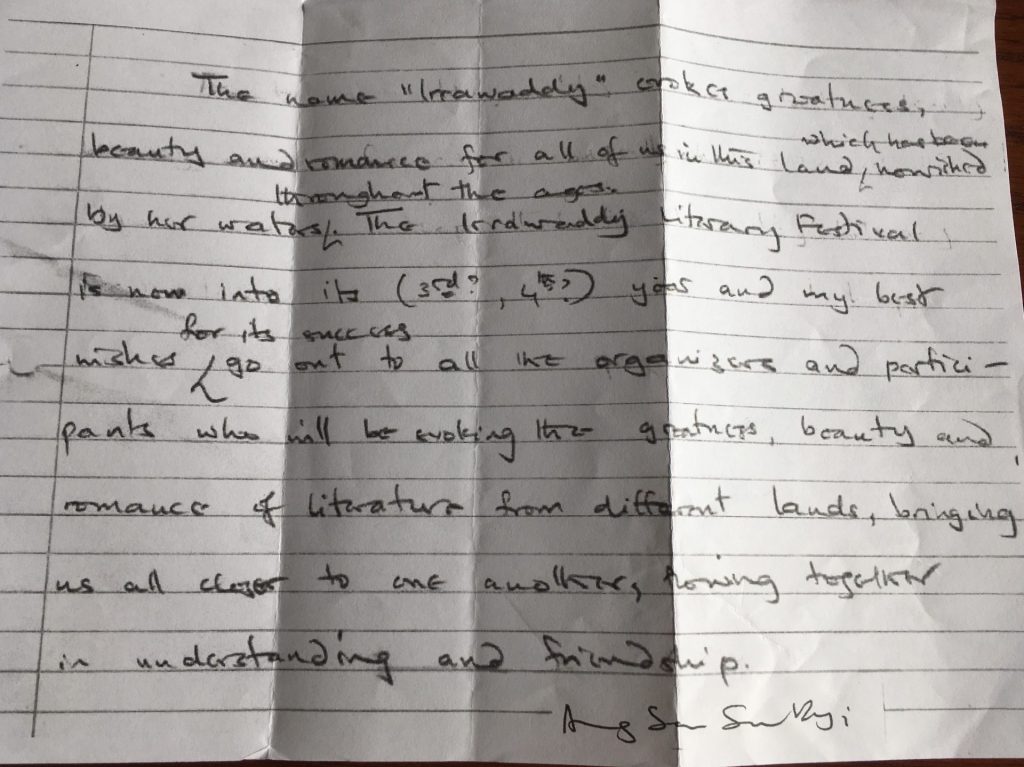 The name "Irrawaddy" evokes greatness,
which has been
beauty and romance for all of us in this land, nourished
throughout the ages.
by her waters. The Irrawaddy Literary Festival
is now into its (3rd?, 4th?) year and my best
for its success
wishes go out to all the organizers and partici-
pants who will be evoking the greatness, beauty and
romance of literature from different lands, bringing
us all closer to one another, flowing together
in understanding and friendship.
Aung San Suu Kyi